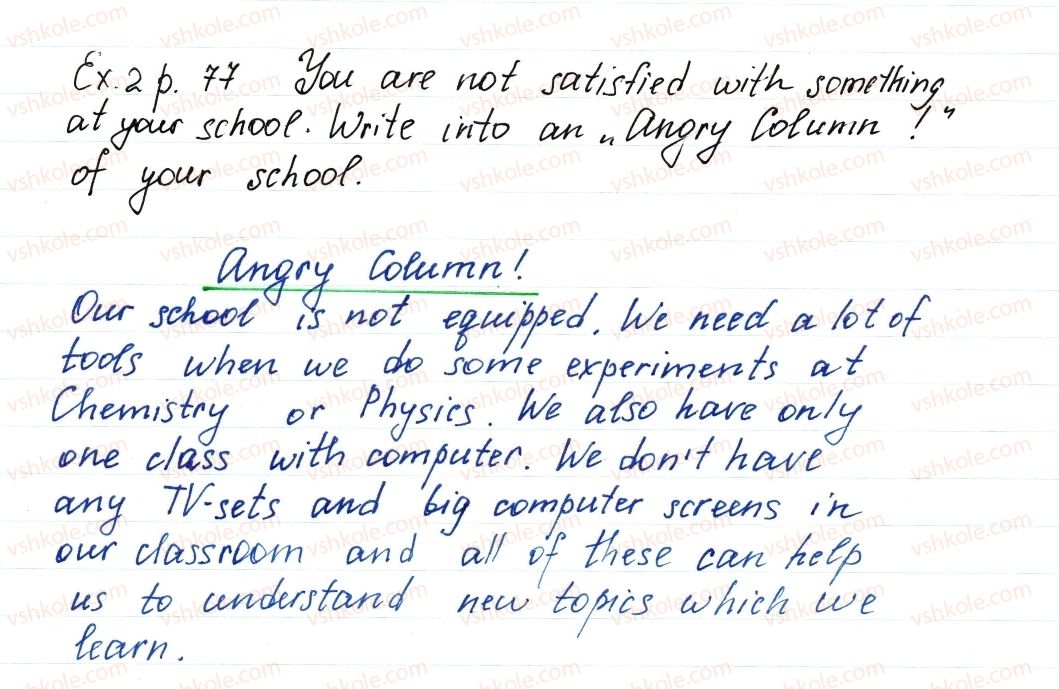 Ex. 2 p. 77 You are not satisfied with something
at your school. Write into an „Angry Column!"
of your school.
Angry Column!
Our school is not equipped. We need a lot of
tools when we do some experiments at
Chemistry or Physics. We also have only
one class with computer. We don't have
any TV-sets and big computer screens in
our classroom and all of these can help
us to understand new topics which we
learn.